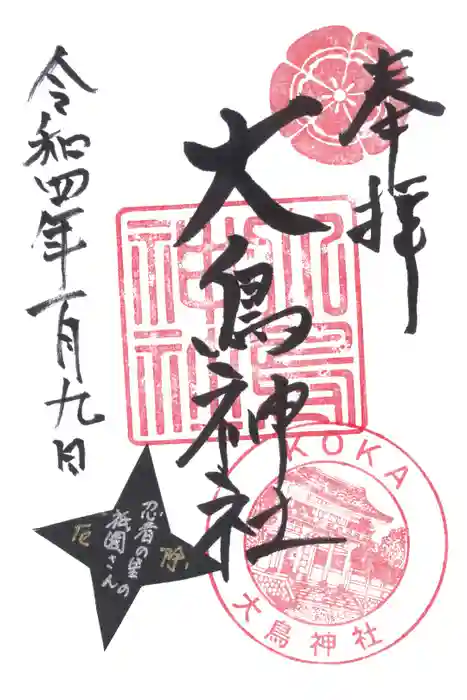 奉拝
大鳥神社
令和四年一月九日
大鳥神社
KOKA
大鳥神社
忍者の里の
祇園さんの
厄除